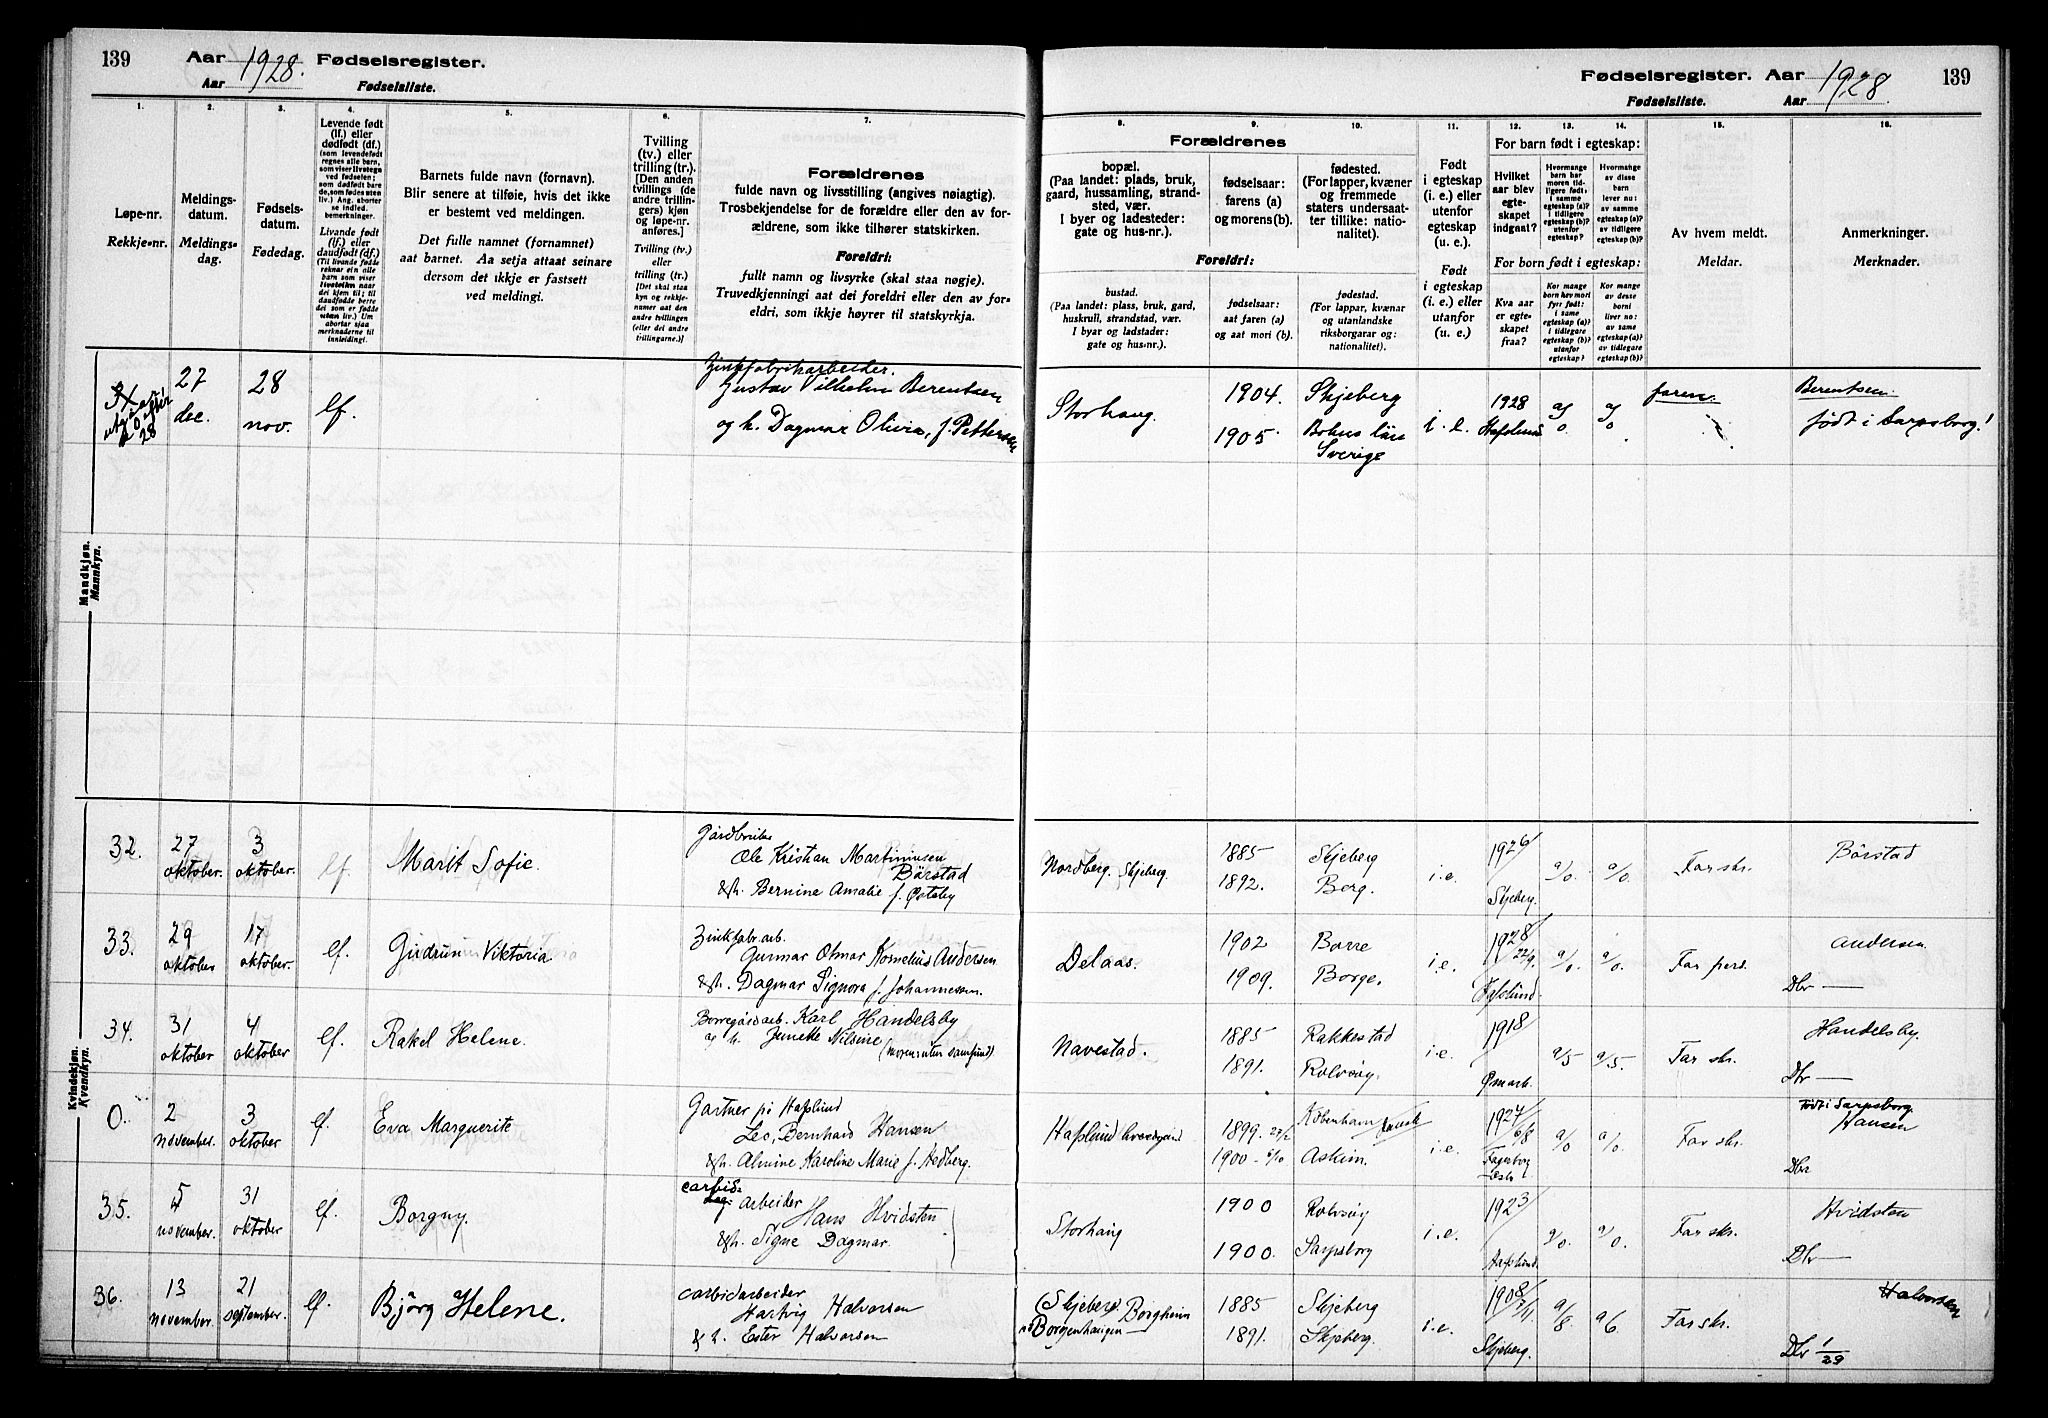 139
Aar 1928. Fødselsregister.
Aar Fødselsliste.
Fødselsregister. Aar 1928
Fødselsliste. Aar
139
1.
Løpe-nr.
Rekkje-nr.
2.
Meldings-
datum.
Meldings-
dag.
3.
Fødsels-
datum.
Fødedag.
4.
Levende født
(lf.) eller
dødfødt (df.)
(som levendefødt
regnes alle barn,
som viser livstegn
ved fødselen;
som dødfødt bare
de, som fødes uten
liv.) Ang. aborter
se indled.
bemerkninger.
Livande født
(lf.) eller
daudfødt (df.)
(Til livande fødde
reknar ein alle
barn som viser
livsteikn naar
dei kjem til; til
daudfødde berre
dei som er fødde
utan liv.) Um
abortar sjaa
merknaderne til
innleiding).
5.
Barnets fulde navn (fornavn).
Blir senere at tilføie, hvis det ikke
er bestemt ved meldingen.
Det fulle namnet (fornamnet)
aat barnet. Aa setja attaat seinare
dersom det ikkje er fastsett
ved meldingi.
6.
Tvilling
(tv.) eller
trilling (tr.)
[Den anden
tvillings (de
andre trillin-
gers) kjøn
og løpe-nr.
anføres.]
Tvilling (tv.)
eller
trilling (tr.)
[Det skal staa
kyn og rekkje-
numer aat den
andre tvillingen
(eller dei andre
trillingarne.)]
7.
Forældrenes
fulde navn og livsstilling (angives nøiagtig).
Trosbekjendelse for de forældre eller den av for-
ældrene, som ikke tilhører statskirken.
Foreldri:
fullt namn og livsyrke (skal staa nøgje).
Truvedkjenningi aat dei foreldri eller den av for-
eldri, som ikkje høyrer til statskyrkja.
Forældrenes
8.
bopæl.
(Paa landet: plads, bruk,
gaard, hussamling, strand-
sted, vær.
I byer og ladesteder:
gate og hus-nr.).
9.
fødselsaar:
farens (a)
og morens (b).
10.
fødested.
(For lapper, kvæner
og fremmede
staters undersaat-
ter tillike: natio-
nalitet).
Foreldri:
bustad.
(Paa landet: plass, bruk, gard,
huskrull, strandstad, vær.
I byar og ladstader:
gate og hus-nr.).
fødselsaar:
aat faren (a)
og aat mori (b).
fødestad.
(For lappar, kvænar
og utanlandske
riksborgarar og:
nationalitet).
11.
Født
i egteskap
(i. e.) eller
utenfor
egteskap
(u. e.).
Født
i egteskap
(i. e.) eller
utanfor
(u. e.).
For barn født i egteskap:
12.
Hvilket
aar blev
egte-
skapet
indgaat?
13.
Hvormange
barn har
moren tid-
ligere født:
i samme
egteskap (a)?
i tidligere
egteskap (b)?
utenfor
egteskap?
14.
Hvormange
av disse
barn
lever nu:
av samme
egteskap (a)?
av tidligere
egteskap (b)?
For born født i egteskap:
Kva aar
er egte-
skapet
fraa?
Kor mange
born hev mori
fyrr født:
i same
egteskap (a)?
i tidlegare
egteskap (b)?
utanfor
egteskap?
Kor mange
av desse
borni
liver no:
av same
egteskap (a)?
av tidlegare
egteskap (b)?
15.
Av hvem meldt.
Meldar.
16.
Anmerkninger.
Merknader.
Mandkjøn.
Mannkyn.
27 dec.
28 nov.
lf.
Zinkfabrikarbeider.
Gustav Vilhelm Berentsen
og h. Dagmar Olivia, f. Pettersen
Storhaug.
1904. Skjeberg
1905. Bohus län
Sverige
i. e.
1928 Hafslund
a/0
a/0
faren.
Berentsen.
født i Sarpsborg!
Kvindekjøn.
Kvendkyn.
32.
27 oktober.
3 oktober.
lf.
Marit Sofie.
Gårdbruker
Ole Kristian Martiniusen
Börstad
& h. Bernine Amalie f. Østeby
Nordberg. Skjeberg.
1885 Skjeberg
1892. Borg.
i.e.
1926/ Skjeberg.
a/0.
a/0.
Far skr.
Börstad
33.
29 oktober
17 oktober.
lf.
Gudrun Viktoria
Zinkfabr. arb.
Gunnar Otmar Kornelius Andersen
& h. Dagmar Signora f. Johannessen.
Delaas.
1902 Borre
1909. Borge.
i.e.
1928/22/9. Hafslund.
a/0.
a/0.
Far pers.
Andersen.
Dbr —
34.
31 oktober
4 oktober
lf.
Rakel Helene.
Borregårdsarb. Karl Handelsby
og h. Jenette Nilsine (moren uten samfund)
Navestad.
1885 Rakkestad
1891. Rolvsøy.
i.e.
1918/
a/5
a/5.
Far skr.
Handelsby.
Dbr —
0.
2 november.
3 oktober
lf.
Eva Marguerite
Gartner på Hafslund
Leo, Bernhard Hansen
& h. Almine Karoline Marie f. Hedberg.
Hafslund hovedgård
1899. 27/2 København /dansk
1900 Askim.
i.e.
1927/6/8
a/0
a/0.
Far skr.
Født i Sarpsborg.
Hansen
Dbr
35.
5 november.
31 oktober
lf.
Borgny.
carbid-
arbeider Hans Hvidsten
& h. Signe Dagmar.
Storhaug
1900 Rolvsøy
1900. Sarpsborg
i.e.
1923/ Hafslund
a/0.
a/0.
Far skr.
Hvidsten
Dbr —
36.
13 november.
21 september.
lf.
Björg Helene.
Carbidarbeider
Hartvig Halvorsen
& h. Ester Halvorsen
(Skjeberg) Borgheim
Borgenhaugen
1885 Skjeberg
1891. Skjeberg.
i.e.
1908/7/11 Skjeberg.
a/8
a/6.
Far skr.
Halvorsen
Dbr 1/29